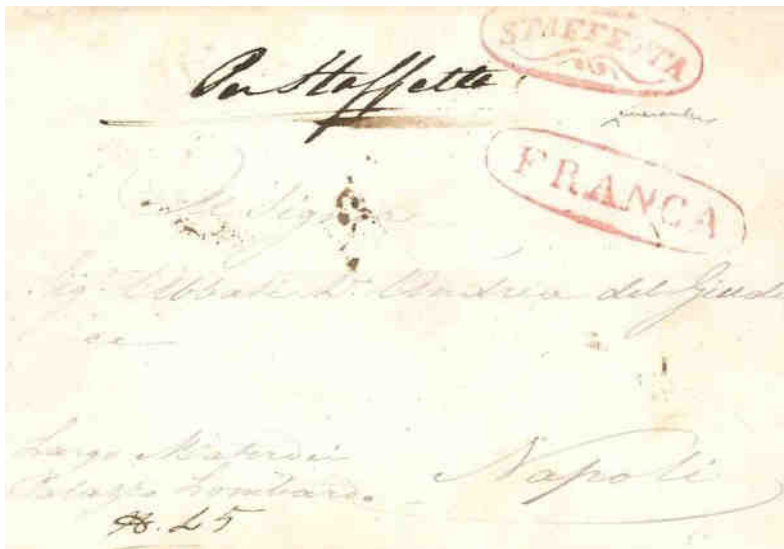 STAFFETTA
Per Staffetta
FRANCA
Al Signor
Sigr. Abbate Dn. Andrea del Giudi
ce
Largo Materdei
Palazzo Lombardo
Napoli
N. 45